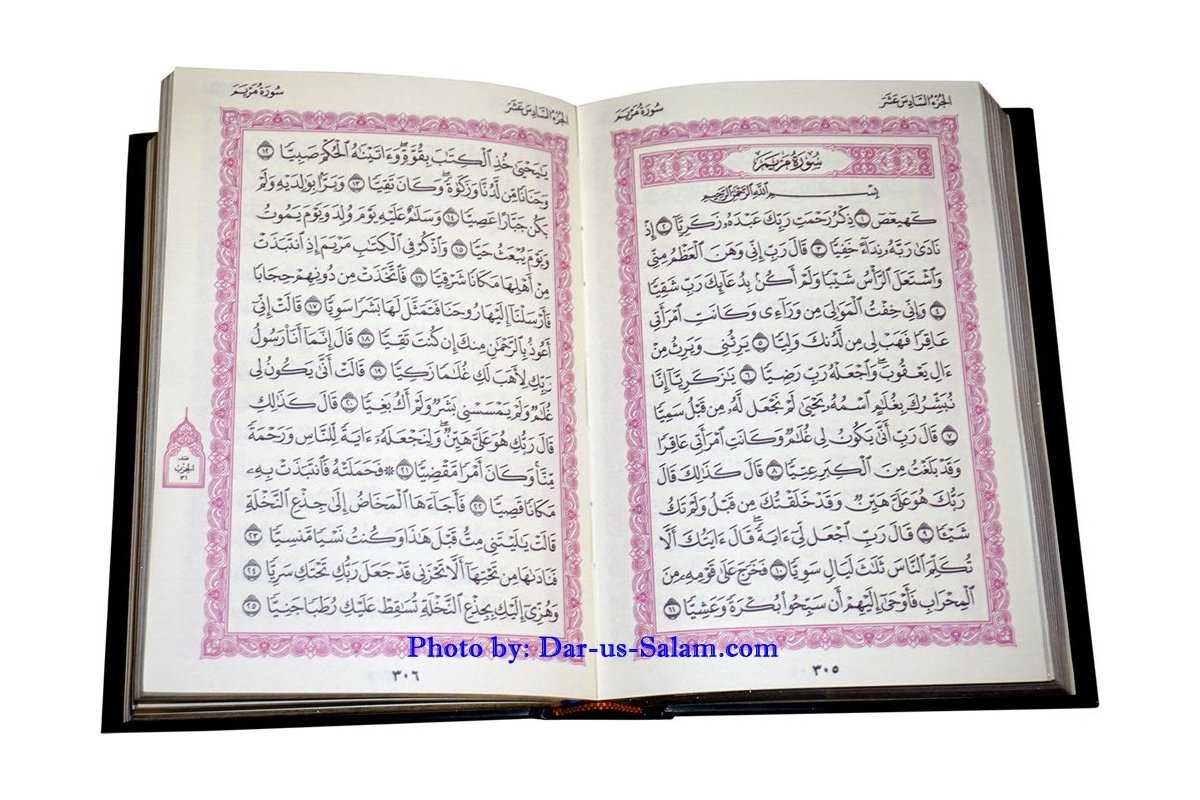 الجزء السادس عشر
سورة مريم
سُورَةُ مَرْيَمَ
بِسْمِ ٱللَّهِ ٱلرَّحْمَٰنِ ٱلرَّحِيمِ
كٓهيعٓصٓ ١ ذِكْرُ رَحْمَتِ رَبِّكَ عَبْدَهُۥ زَكَرِيَّآ ٢ إِذْ
نَادَىٰ رَبَّهُۥ نِدَآءً خَفِيًّا ٣ قَالَ رَبِّ إِنِّى وَهَنَ ٱلْعَظْمُ مِنِّى
وَٱشْتَعَلَ ٱلرَّأْسُ شَيْبًا وَلَمْ أَكُنۢ بِدُعَآئِكَ رَبِّ شَقِيًّا
٤ وَإِنِّى خِفْتُ ٱلْمَوَٰلِىَ مِن وَرَآءِى وَكَانَتِ ٱمْرَأَتِى
عَاقِرًا فَهَبْ لِى مِن لَّدُنكَ وَلِيًّا ٥ يَرِثُنِى وَيَرِثُ مِنْ
ءَالِ يَعْقُوبَ ۖ وَٱجْعَلْهُ رَبِّ رَضِيًّا ٦ يَٰزَكَرِيَّآ إِنَّا
نُبَشِّرُكَ بِغُلَٰمٍ ٱسْمُهُۥ يَحْيَىٰ لَمْ نَجْعَل لَّهُۥ مِن قَبْلُ سَمِيًّا
٧ قَالَ رَبِّ أَنَّىٰ يَكُونُ لِى غُلَٰمٌ وَكَانَتِ ٱمْرَأَتِى عَاقِرًا
وَقَدْ بَلَغْتُ مِنَ ٱلْكِبَرِ عِتِيًّا ٨ قَالَ كَذَٰلِكَ قَالَ
رَبُّكَ هُوَ عَلَىَّ هَيِّنٌ وَقَدْ خَلَقْتُكَ مِن قَبْلُ وَلَمْ تَكُ
شَيْـًٔا ٩ قَالَ رَبِّ ٱجْعَل لِّىٓ ءَايَةً ۚ قَالَ ءَايَتُكَ أَلَّا
تُكَلِّمَ ٱلنَّاسَ ثَلَٰثَ لَيَالٍ سَوِيًّا ١٠ فَخَرَجَ عَلَىٰ قَوْمِهِۦ مِنَ
ٱلْمِحْرَابِ فَأَوْحَىٰٓ إِلَيْهِمْ أَن سَبِّحُوا۟ بُكْرَةً وَعَشِيًّا ١١
٣٠٥
الجزء السادس عشر
سورة مريم
يَٰيَحْيَىٰ خُذِ ٱلْكِتَٰبَ بِقُوَّةٍ ۖ وَءَاتَيْنَٰهُ ٱلْحُكْمَ صَبِيًّا ١٢
وَحَنَانًا مِّن لَّدُنَّا وَزَكَوٰةً ۖ وَكَانَ تَقِيًّا ١٣ وَبَرًّۢا بِوَٰلِدَيْهِ وَلَمْ
يَكُن جَبَّارًا عَصِيًّا ١٤ وَسَلَٰمٌ عَلَيْهِ يَوْمَ وُلِدَ وَيَوْمَ يَمُوتُ
وَيَوْمَ يُبْعَثُ حَيًّا ١٥ وَٱذْكُرْ فِى ٱلْكِتَٰبِ مَرْيَمَ إِذِ ٱنتَبَذَتْ
مِنْ أَهْلِهَا مَكَانًا شَرْقِيًّا ١٦ فَٱتَّخَذَتْ مِن دُونِهِمْ حِجَابًا
فَأَرْسَلْنَآ إِلَيْهَا رُوحَنَا فَتَمَثَّلَ لَهَا بَشَرًا سَوِيًّا ١٧ قَالَتْ إِنِّىٓ
أَعُوذُ بِٱلرَّحْمَٰنِ مِنكَ إِن كُنتَ تَقِيًّا ١٨ قَالَ إِنَّمَآ أَنَا۠ رَسُولُ
رَبِّكِ لِأَهَبَ لَكِ غُلَٰمًا زَكِيًّا ١٩ قَالَتْ أَنَّىٰ يَكُونُ لِى
غُلَٰمٌ وَلَمْ يَمْسَسْنِى بَشَرٌ وَلَمْ أَكُ بَغِيًّا ٢٠ قَالَ كَذَٰلِكِ
قَالَ رَبُّكِ هُوَ عَلَىَّ هَيِّنٌ ۖ وَلِنَجْعَلَهُۥٓ ءَايَةً لِّلنَّاسِ وَرَحْمَةً
مِّنَّا ۚ وَكَانَ أَمْرًا مَّقْضِيًّا ٢١ ۞ فَحَمَلَتْهُ فَٱنتَبَذَتْ بِهِۦ
مَكَانًا قَصِيًّا ٢٢ فَأَجَآءَهَا ٱلْمَخَاضُ إِلَىٰ جِذْعِ ٱلنَّخْلَةِ
قَالَتْ يَٰلَيْتَنِى مِتُّ قَبْلَ هَٰذَا وَكُنتُ نَسْيًا مَّنسِيًّا ٢٣
فَنَادَىٰهَا مِن تَحْتِهَآ أَلَّا تَحْزَنِى قَدْ جَعَلَ رَبُّكِ تَحْتَكِ سَرِيًّا ٢٤
وَهُزِّىٓ إِلَيْكِ بِجِذْعِ ٱلنَّخْلَةِ تُسَٰقِطْ عَلَيْكِ رُطَبًا جَنِيًّا ٢٥
الحزب
٣١
٣٠٦
Photo by: Dar-us-Salam.com